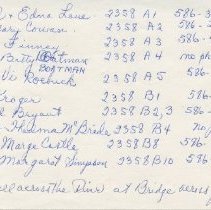 & Edna Lane 2358 A1 586-3
ary Cowan 2358 A2
Finney 2358 A3 586-
Betty Boatman 2358 A4 no ph
BOATMAN
Rohrick 2358 A5 586-
roger 2358 B1 586-
Bryant 2358 B2,3 586-
Thelma McBride 2358 B4 No
Marge Castle 2358 B8 586-
Margaret Simpson 2358 B10 586-
all across the River at Bridge